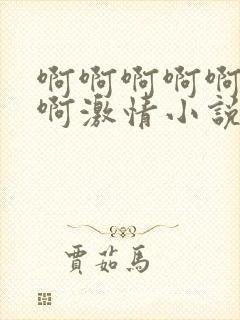 啊啊啊啊啊
啊激情小說
賈茹馬